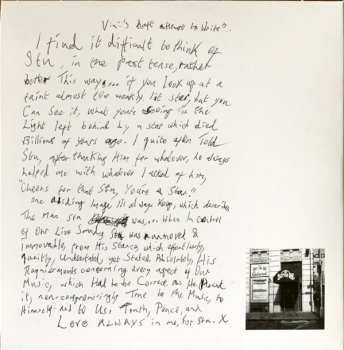 Vini's Best attempt to Write.
I find it difficult to think of
Stu, in the past tense, rather
This way.... if you look up at a
faint almost too weakly lit star, but you
Can see it, What you're seeing is the
Light left behind by a star which died
Billions of years ago. I quite often Told
Stu, after thanking Him for whatever, he always
helped me with whatever I asked of him,
"Cheers for that Stu, You're a Star!"
one Image I'll always Keep, which describes
The man Stu was... When In control
of Our Live Sound, Stu was unmoved &
immovable, from His Stance, which effortlessly,
quietly, Understated, yet Stated Absolutely, His
Requirements concerning every aspect of Our
Music, which Had to be Correct as He
it, non-compromisingly True to the Music, to
Himself and to Us. Truth, Peace, and
Love ALWAYS in me, for Stu. X